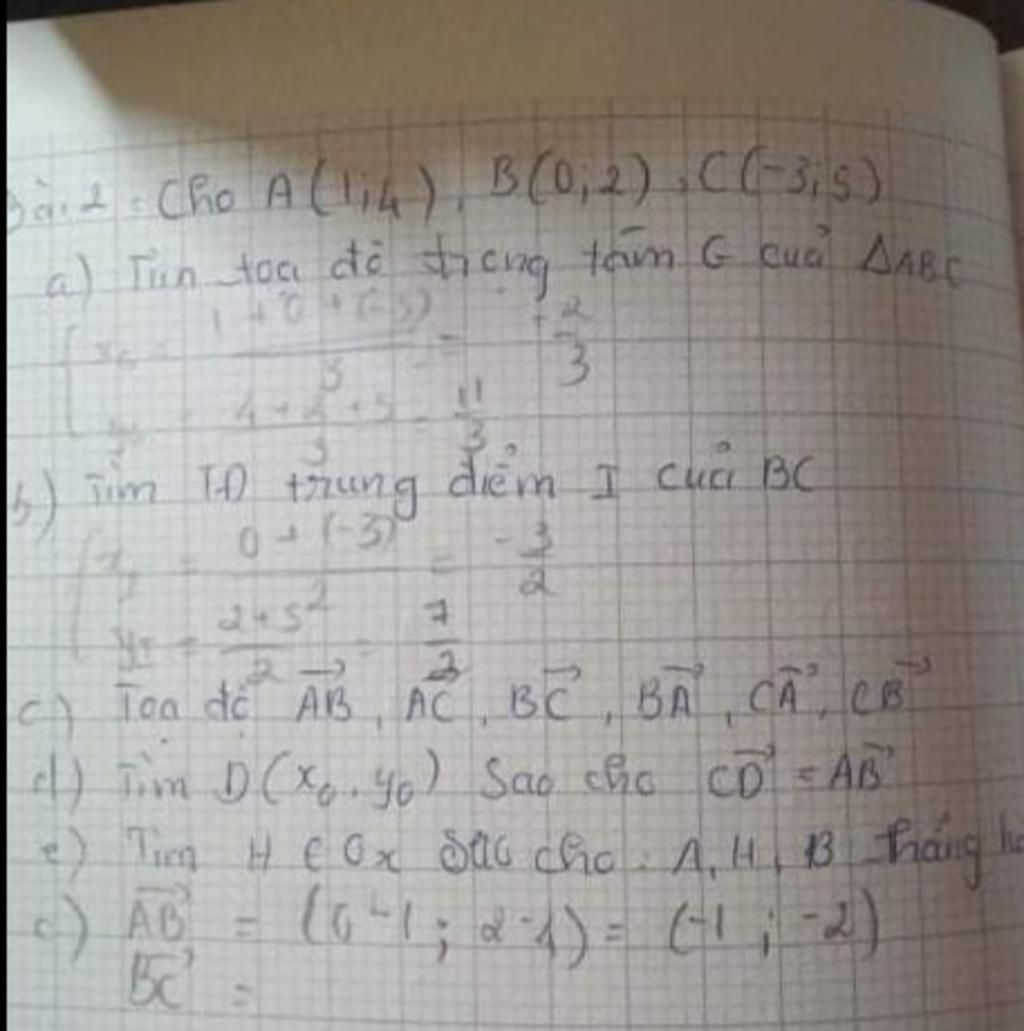 Bài 2: Cho A(1;4), B(0;2), C(-3;5)
a) Tìm toạ độ trọng tâm G của ΔABC
{ x_G = (1 + 0 + (-3))/3 = -2/3
y_G = (4 + 2 + 5)/3 = 11/3
b) Tìm TĐ trung điểm I của BC
{ x_I = (0 + (-3))/2 = -3/2
y_I = (2 + 5)/2 = 7/2
c) Toạ độ AB→, AC→, BC→, BA→, CA→, CB→
d) Tìm D(x_0, y_0) Sao cho CD→ = AB→
e) Tìm H ∈ Ox Sao cho: A, H, B thẳng
c) AB→ = (0-1; 2-4) = (-1; -2)
BC→ =